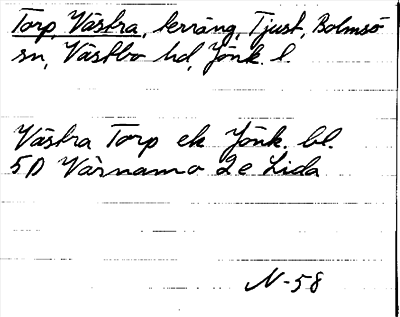 Torp, Västra, terräng, Tjust, Bolmsö
sn, Västbo hd, Jönk. l.
Västra Torp ek Jönk. bl.
5D Värnamo 2e Lida
N-58